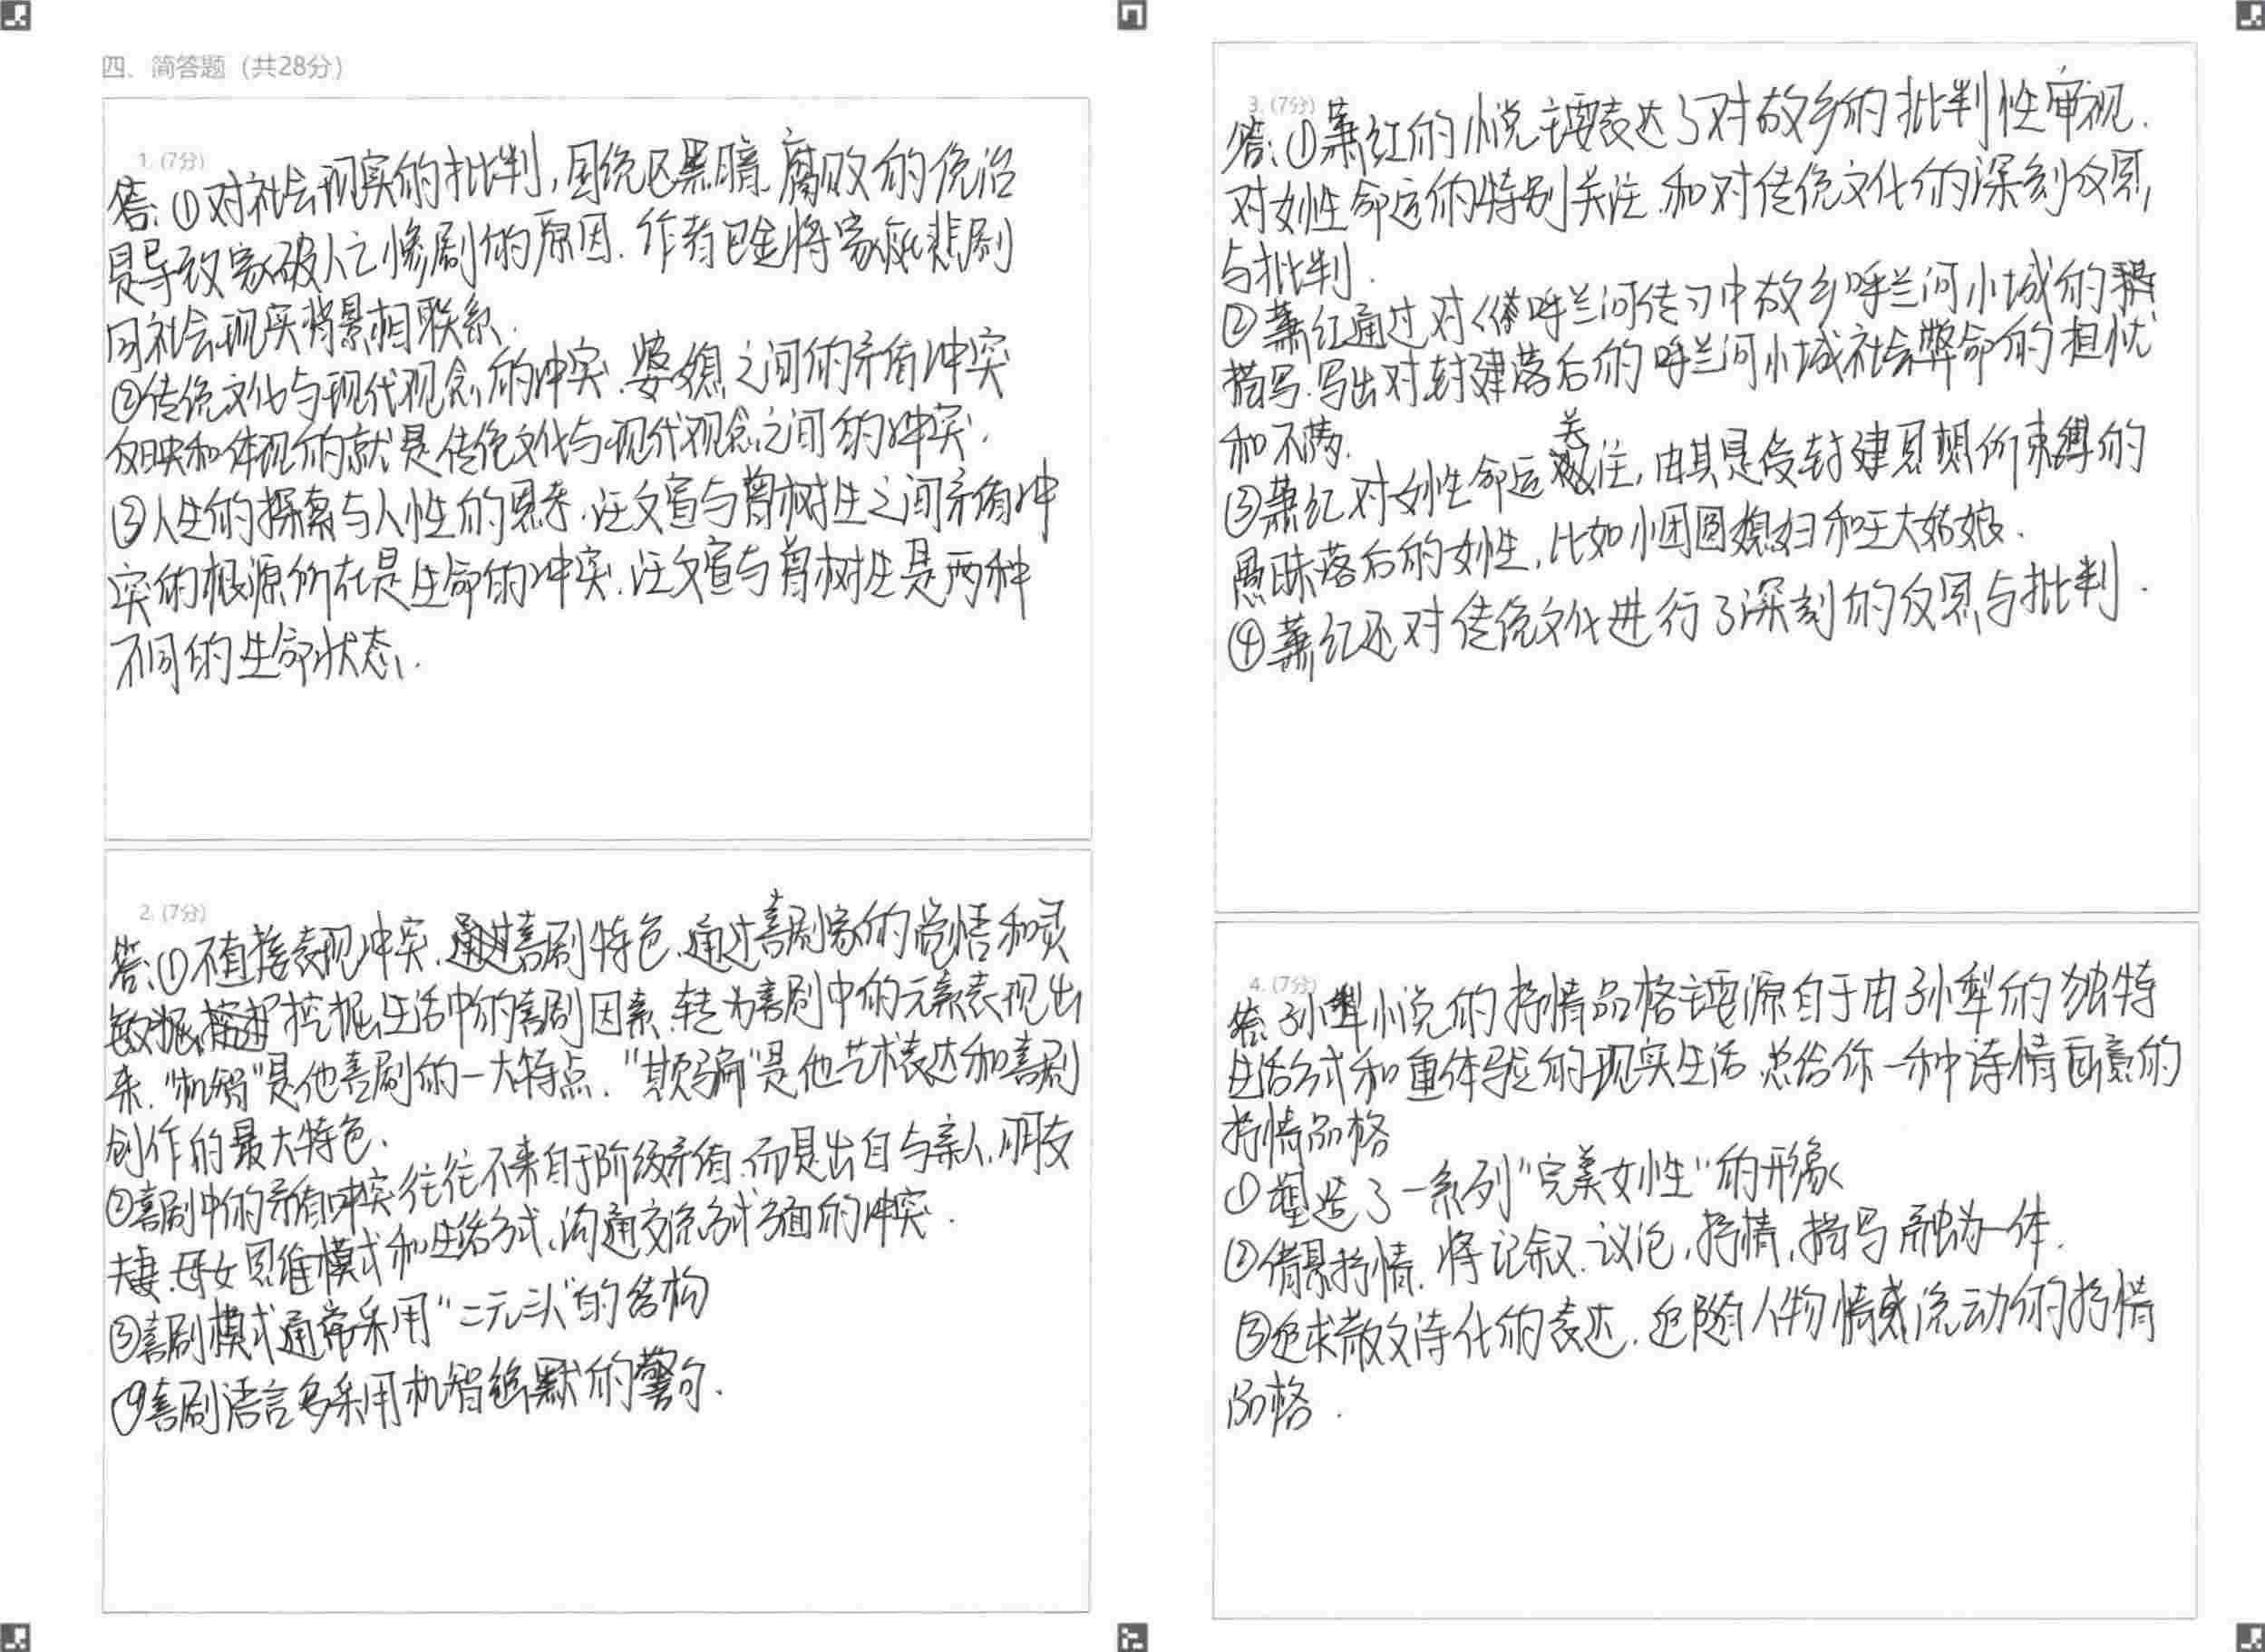 四、简答题（共28分）
1. (7分)
答：①对社会现实的批判，国统区黑暗、腐败的统治
是导致家破人亡惨剧的原因．作者巴金将家庭悲剧
同社会现实背景相联系．
②传统文化与现代观念的冲突．婆媳之间的矛盾冲突
反映和体现的就是传统文化与现代观念之间的冲突．
③人生的探索与人性的思考．汪文宣与曾树生之间矛盾冲
突的根源所在是生命的冲突．汪文宣与曾树生是两种
不同的生命状态．
2. (7分)
答：①不直接表现冲突．通过喜剧特色．通过喜剧家的觉悟和灵
敏挖掘生活中的喜剧因素．转为喜剧中的元素表现出
来．“机智”是他喜剧的一大特点．“欺骗”是他艺术表达和喜剧
创作的最大特色．
②喜剧中的矛盾冲突往往不来自于阶级矛盾．而是出自与亲人、朋友
夫妻、母女思维模式和生活方式、沟通交流方式方面的冲突．
③喜剧模式通常采用“二元三人”的结构
④喜剧语言多采用机智幽默的警句．
3. (7分)
答：①萧红的小说主要表达了对故乡的批判性审视．
对女性命运的特别关注．和对传统文化的深刻反思，
与批判．
②萧红通过对《呼兰河传》中故乡呼兰河小城的
描写．写出对封建落后的呼兰河小城社会弊命的担忧
和不满．
③萧红对女性命运关注，由其是受封建思想所束缚的
愚昧落后的女性，比如小团圆媳妇和王大姑娘．
④萧红还对传统文化进行了深刻的反思与批判．
4. (7分)
答：孙犁小说的抒情品格主要源自于由孙犁的独特
生活方式和重体验的现实生活 总给你一种诗情画意的
抒情品格
①塑造了一系列“完美女性”的形象
②借景抒情．将记叙．议论，抒情，描写融为一体．
③追求散文诗化的表达．追随人物情感流动的抒情
品格．